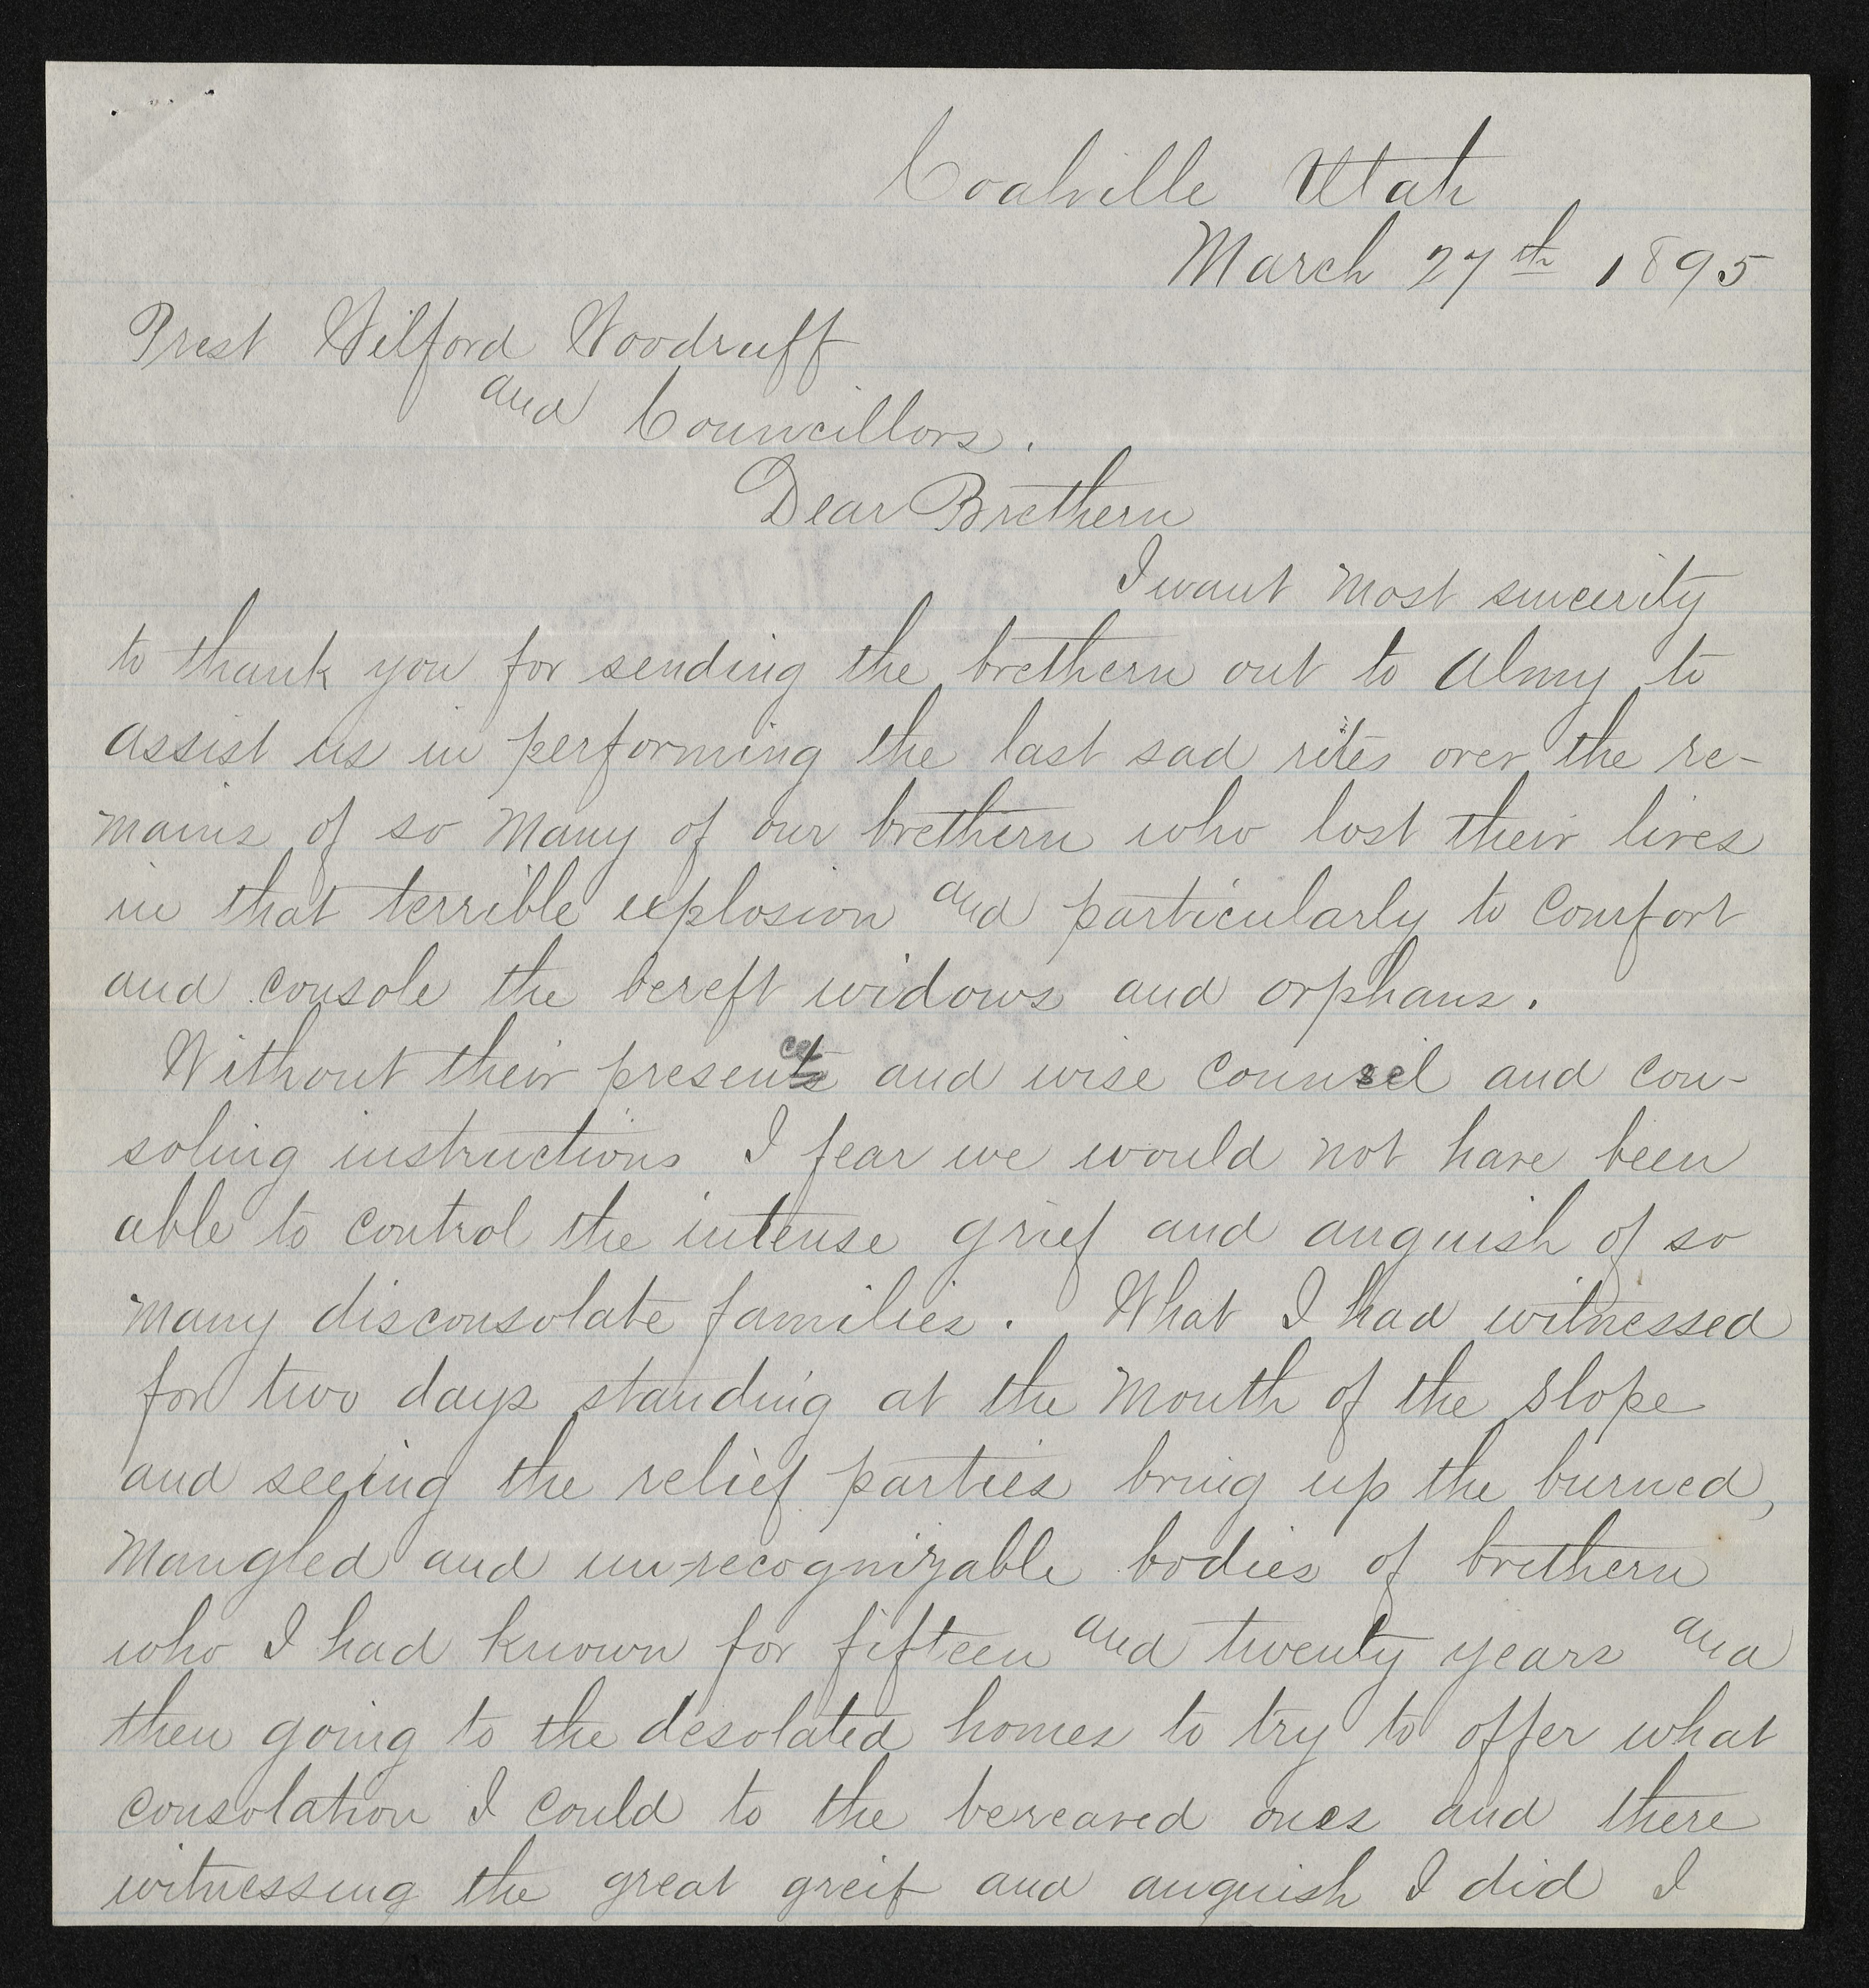 Coalville Utah
March 27th 1895
Prest Wilford Woodruff
and Councillors.
Dear Brethern
I want most sincerity
to thank you for sending the brethern out to Almy to
assist us in performing the last sad rites over the re-
mains of so many of our brethern who lost their lives
in that terrible explosion and particularly to comfort
and console the bereft widows and orphans.
Without their presence and wise counsel and con-
soling instructions I fear we would not have been
able to control the intense grief and anguish of so
many disconsolate families. What I had witnessed
for two days standing at the mouth of the slope
and seeing the relief parties bring up the burned,
mangled and un-recognizable bodies of brethern
who I had known for fifteen and twenty years and
then going to the desolated homes to try to offer what
consolation I could to the bereaved ones and there
witnessing the great greif and anguish I did I